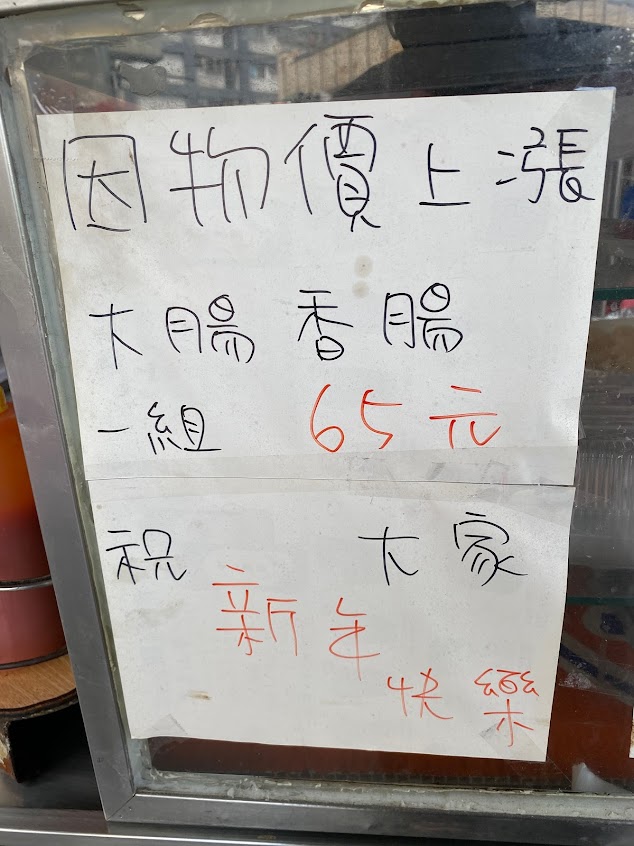 因物價上漲
大腸香腸
一組 65元
祝 大家
新年
快樂